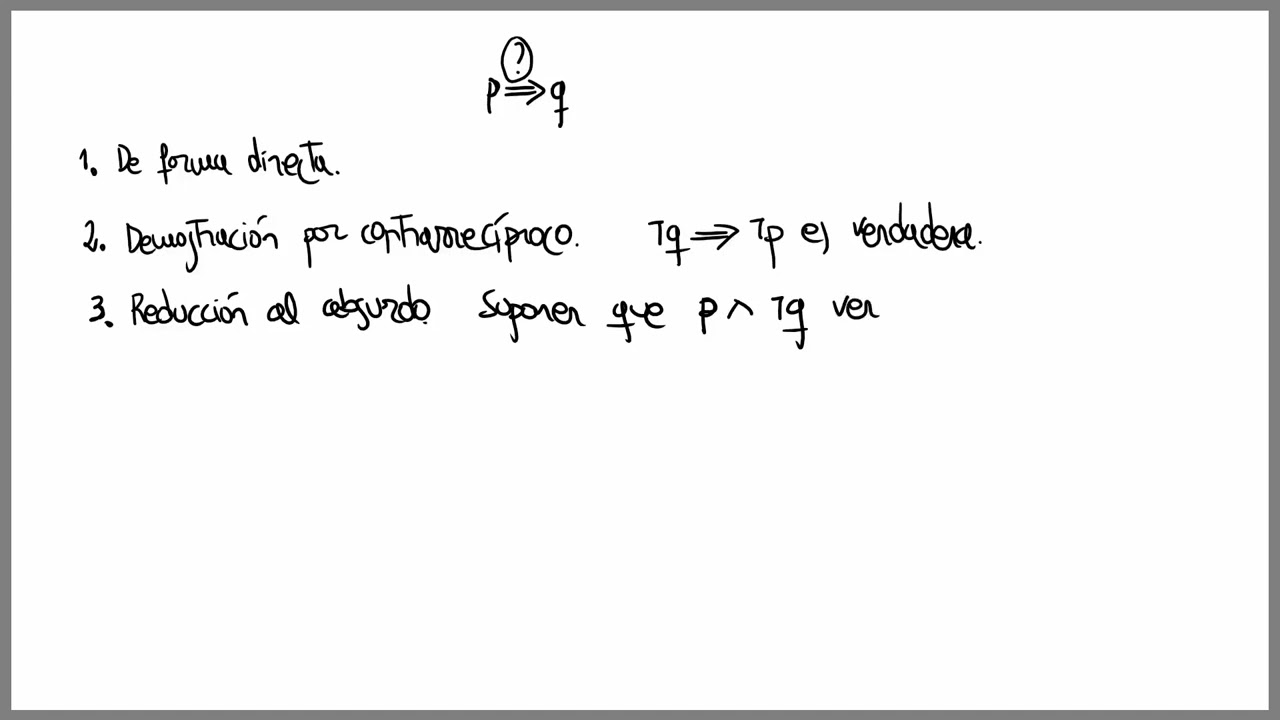 ?
p ⟹ q
1. De forma directa.
2. Demostración por contrarrecíproco. ¬q ⟹ ¬p es verdadera.
3. Reducción al absurdo. Suponer que p ∧ ¬q ver